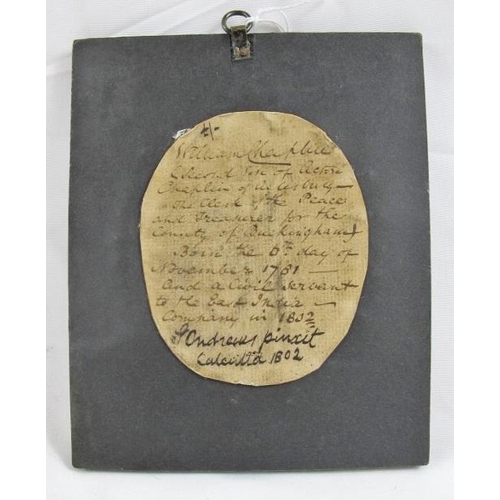 4/-
William Chaplin
Second Son of Acton
Chaplin of Aylesbury —
the Clerk of the Peace
and Treasurer for the
County of Buckingham
Born the 6th day of
November 1781 —
and a Civil Servant
to the East India —
Company in 1802
S Andrews pinxit
Calcutta 1802